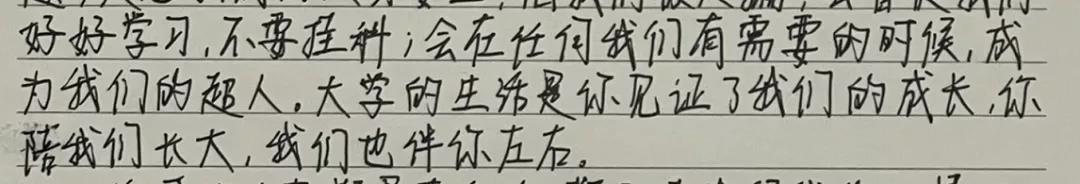 好好学习,不要挂科;会在任何我们有需要的时候,成
为我们的超人。大学的生活是你见证了我们的成长,你
陪我们长大,我们也伴你左右。